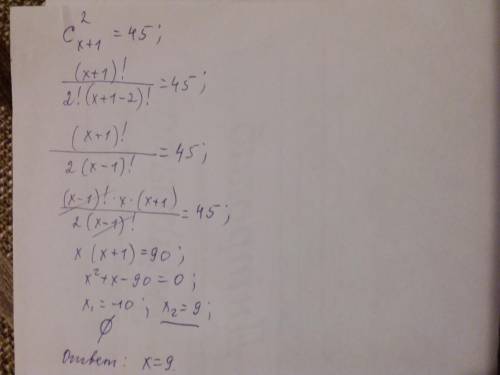 C²ₓ₊₁ = 45;
(x+1)! / 2!(x+1-2)! = 45;
(x+1)! / 2(x-1)! = 45;
(x-1)! · x · (x+1) / 2(x-1)! = 45;
x(x+1) = 90;
x² + x - 90 = 0;
x₁ = -10; x₂ = 9;
∅
Ответ: x = 9.